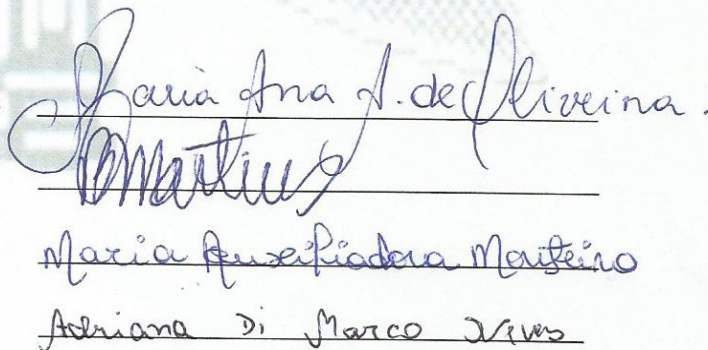 Maria Ana A. de Oliveira.
BMartins
Maria Auxiliadora Monteiro
Adriana Di Marco Neves